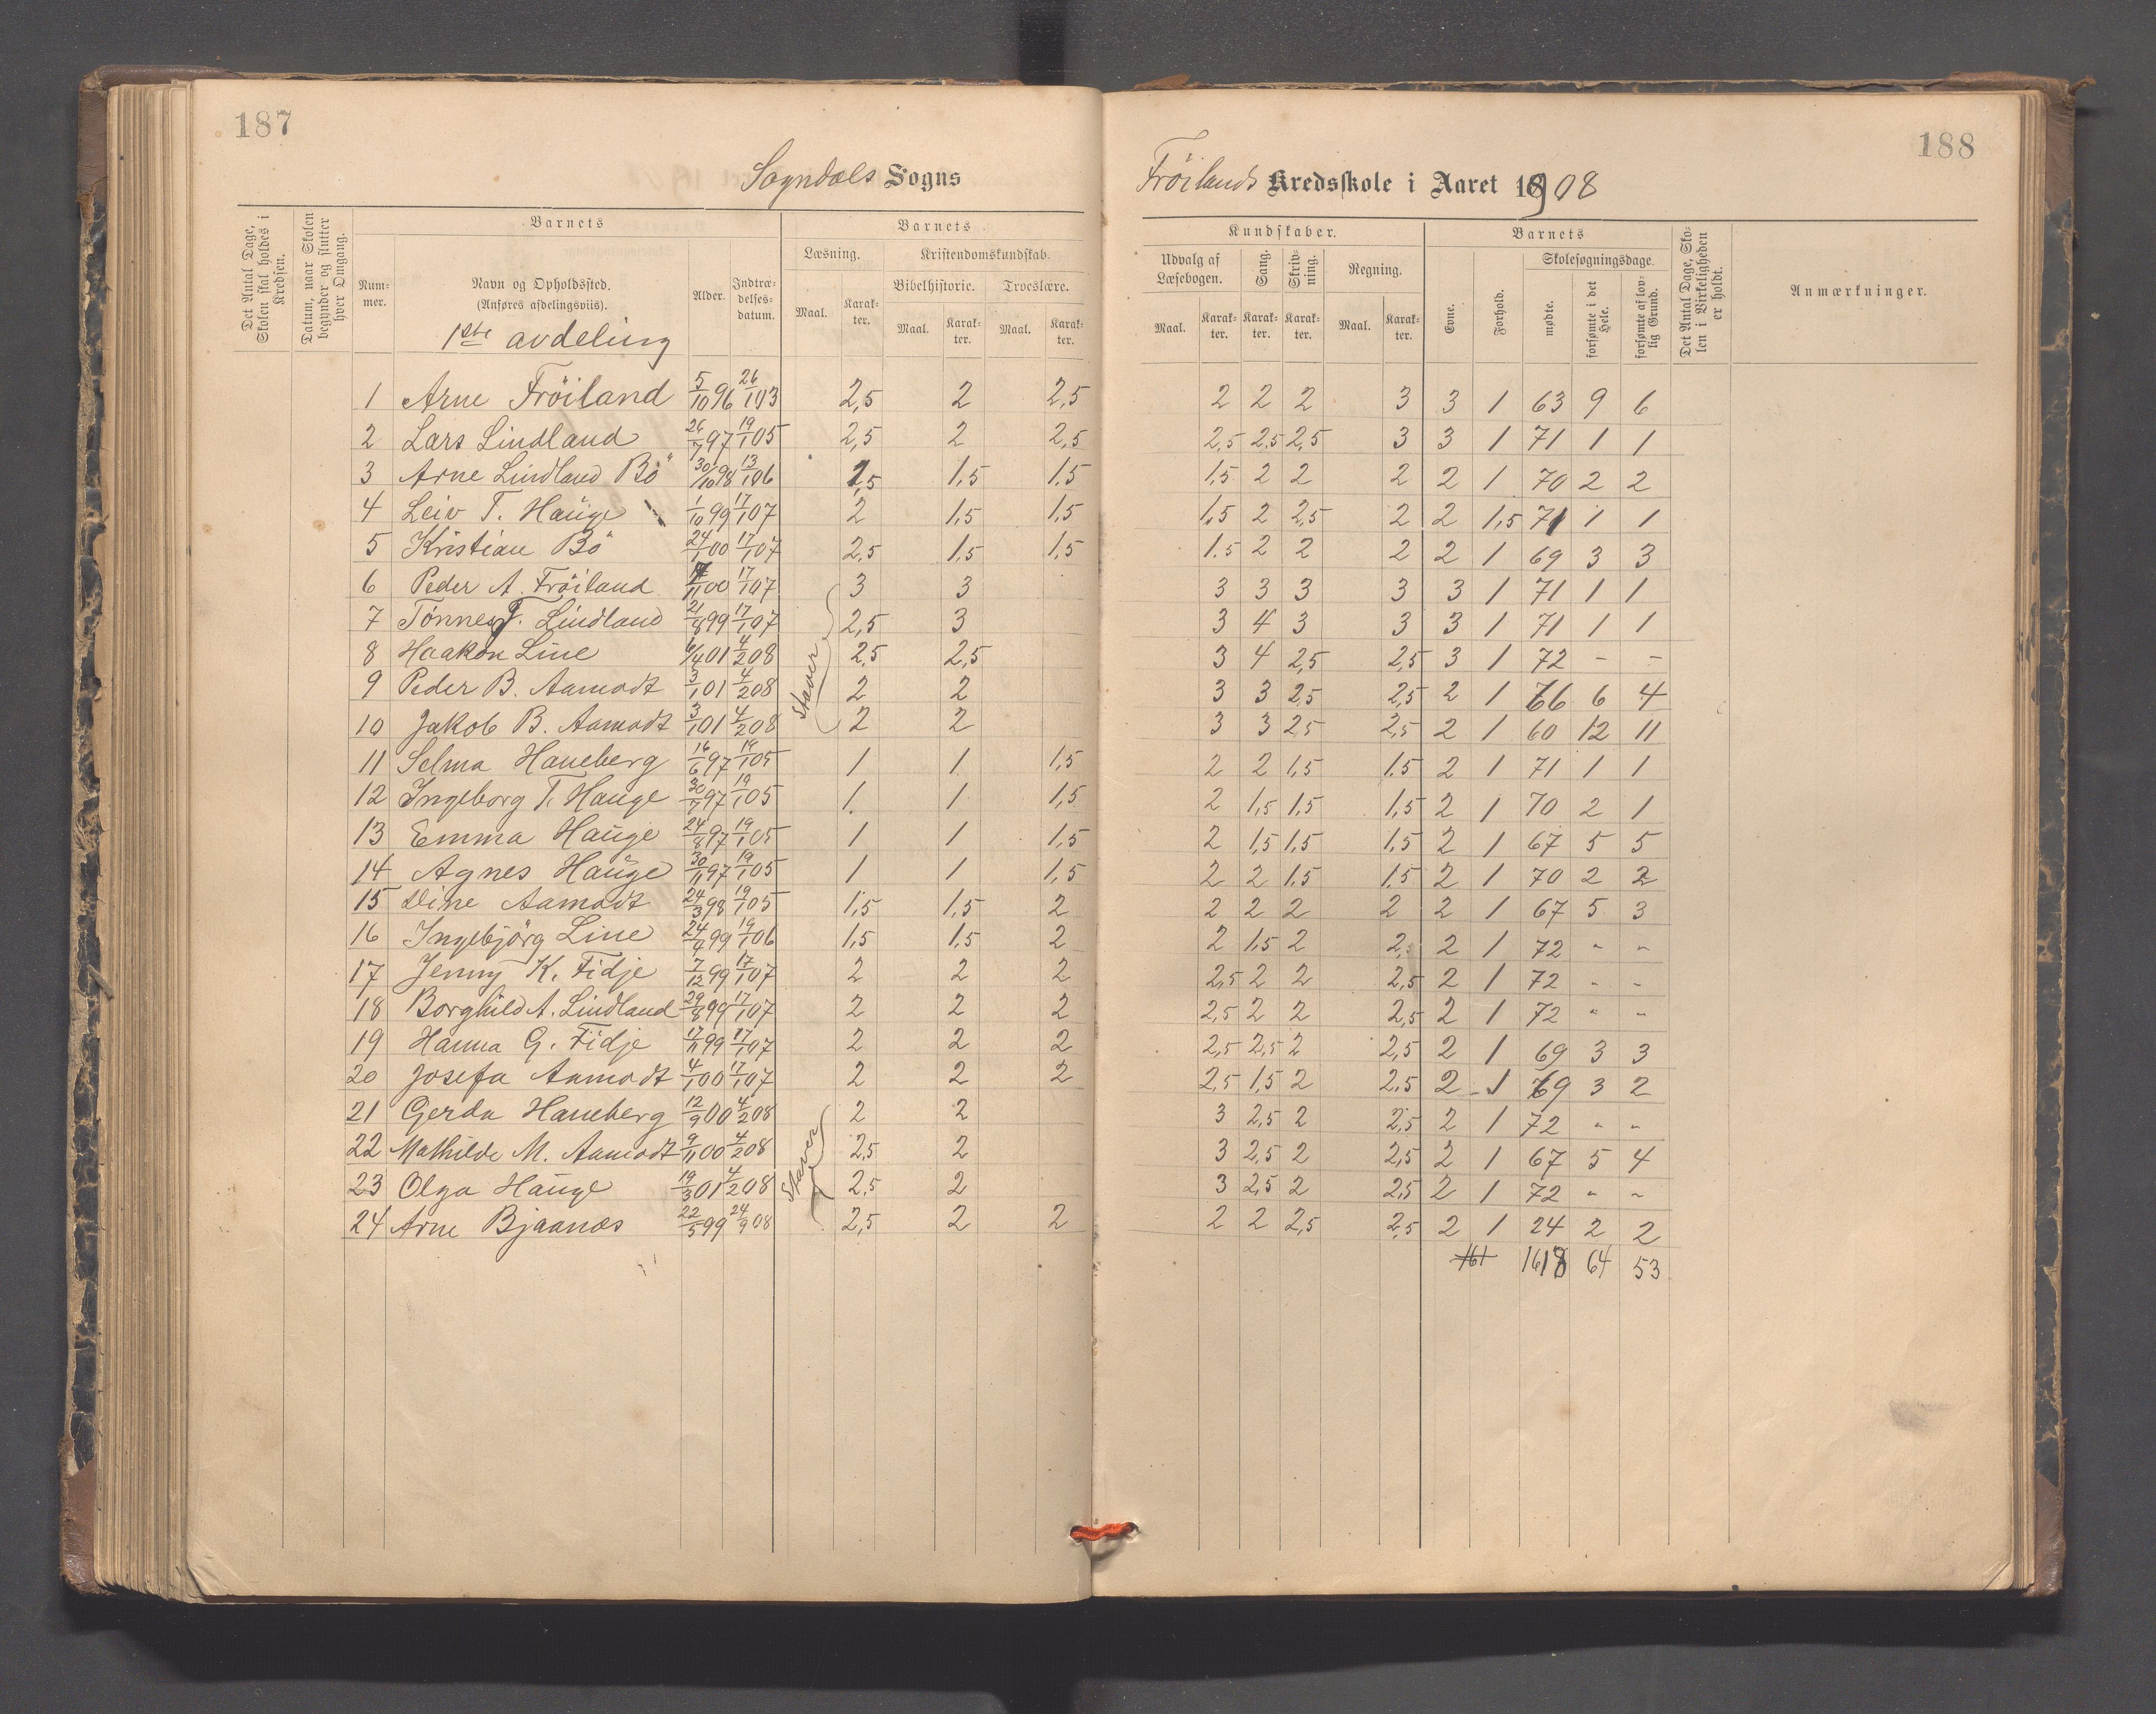 187
188
Sogndals Sogns
Fröilands Kredsskole i Aaret 1908
Det Antal Dage, Skolen skal holdes i Kredsen.
Datum, naar Skolen begynder og slutter hver Omgang.
Barnets
Num-mer.
Navn og Opholdssted.
(Anføres afdelingsviis).
1ste avdeling
Alder.
Indtræ-delses-datum.
Barnets
Læsning.
Kristendomskundskab.
Bibelhistorie.
Troeslære.
Maal. Karak-ter. Maal. Karak-ter. Maal. Karak-ter.
Kundskaber.
Udvalg af Læsebogen.
Sang.
Skriv-ning.
Regning.
Maal. Karak-ter. Karak-ter. Karak-ter. Maal. Karak-ter.
Barnets
Evne.
Forhold.
Skolesøgningsdage.
mødte.
forsømte i det Hele.
forsømte af lov-lig Grund.
Det Antal Dage, Sko-len i Virkeligheden er holdt.
Anmærkninger.
1 Arne Fröiland 5/10 96 26/1 03 2,5 2 2,5 2 2 2 3 3 1 63 9 6
2 Lars Lindland 26/7 97 19/1 05 2,5 2 2,5 2,5 2,5 2,5 3 3 1 71 1 1
3 Arne Lindland Bö 30/10 98 13/1 06 1,5 1,5 1,5 1,5 2 2 2 2 1 70 2 2
4 Leiv T. Hauge 1/10 99 17/1 07 2 1,5 1,5 1,5 2 2,5 2 2 1,5 71 1 1
5 Kristian Bö 24/1 00 17/1 07 2,5 1,5 1,5 1.5 2 2 2 2 1 69 3 3
6 Peder A. Fröiland /11 00 17/1 07 3 3 3 3 3 3 3 1 71 1 1
7 Tönnes T. Lindland 21/8 99 17/1 07 2,5 3 3 4 3 3 3 1 71 1 1
8 Haakon Line 6/4 01 4/2 08 2,5 2,5 3 4 2,5 2,5 3 1 72 - -
9 Peder B. Aamodt 3/1 01 4/2 08 2 2 3 3 2,5 2,5 2 1 66 6 4
10 Jakob B. Aamodt 3/1 01 4/2 08 2 2 3 3 2,5 2,5 2 1 60 12 11
Staver
11 Selma Haneberg 16/6 97 19/1 05 1 1 1,5 2 2 1,5 1.5 2 1 71 1 1
12 Ingeborg T. Hauge 30/7 97 19/1 05 1 1 1,5 2 1,5 1,5 1,5 2 1 70 2 1
13 Emma Hauge 24/8 97 19/1 05 1 1 1,5 2 1,5 1,5 1.5 2 1 67 5 5
14 Agnes Hauge 30/11 97 19/1 05 1 1 1,5 2 2 1,5 1,5 2 1 70 2 2
15 Dine Aamodt 24/3 98 19/1 05 1,5 1,5 2 2 2 2 2 2 1 67 5 3
16 Ingebjörg Line 24/4 99 19/1 06 1,5 1,5 2 2 1,5 2 2,5 2 1 72 " "
17 Jenny K. Fidje 7/12 99 17/1 07 2 2 2 2,5 2 2 2,5 2 1 72 - -
18 Borghild A. Lindland 29/8 99 17/1 07 2 2 2 2,5 2 2 2,5 2 1 72 " "
19 Hanna G. Fidje 17/11 99 17/1 07 2 2 2 2,5 2,5 2 2,5 2 1 69 3 3
20 Josefa Aamodt 4/1 00 17/1 07 2 2 2 2,5 1,5 2 2,5 2 1 69 3 2
21 Gerda Haneberg 12/9 00 4/2 08 2 2 3 2,5 2 2,5 2 1 72 " "
22 Mathilde M. Aamodt 9/11 00 4/2 08 2,5 2 3 2,5 2 2,5 2 1 67 5 4
23 Olga Hauge 19/3 01 4/2 08 2,5 2 3 2,5 2 2,5 2 1 72 " "
Staver
24 Arne Bjaanes 22/5 99 24/9 08 2,5 2 2 2 2 2,5 2,5 2 1 24 2 2
161 1618 64 53